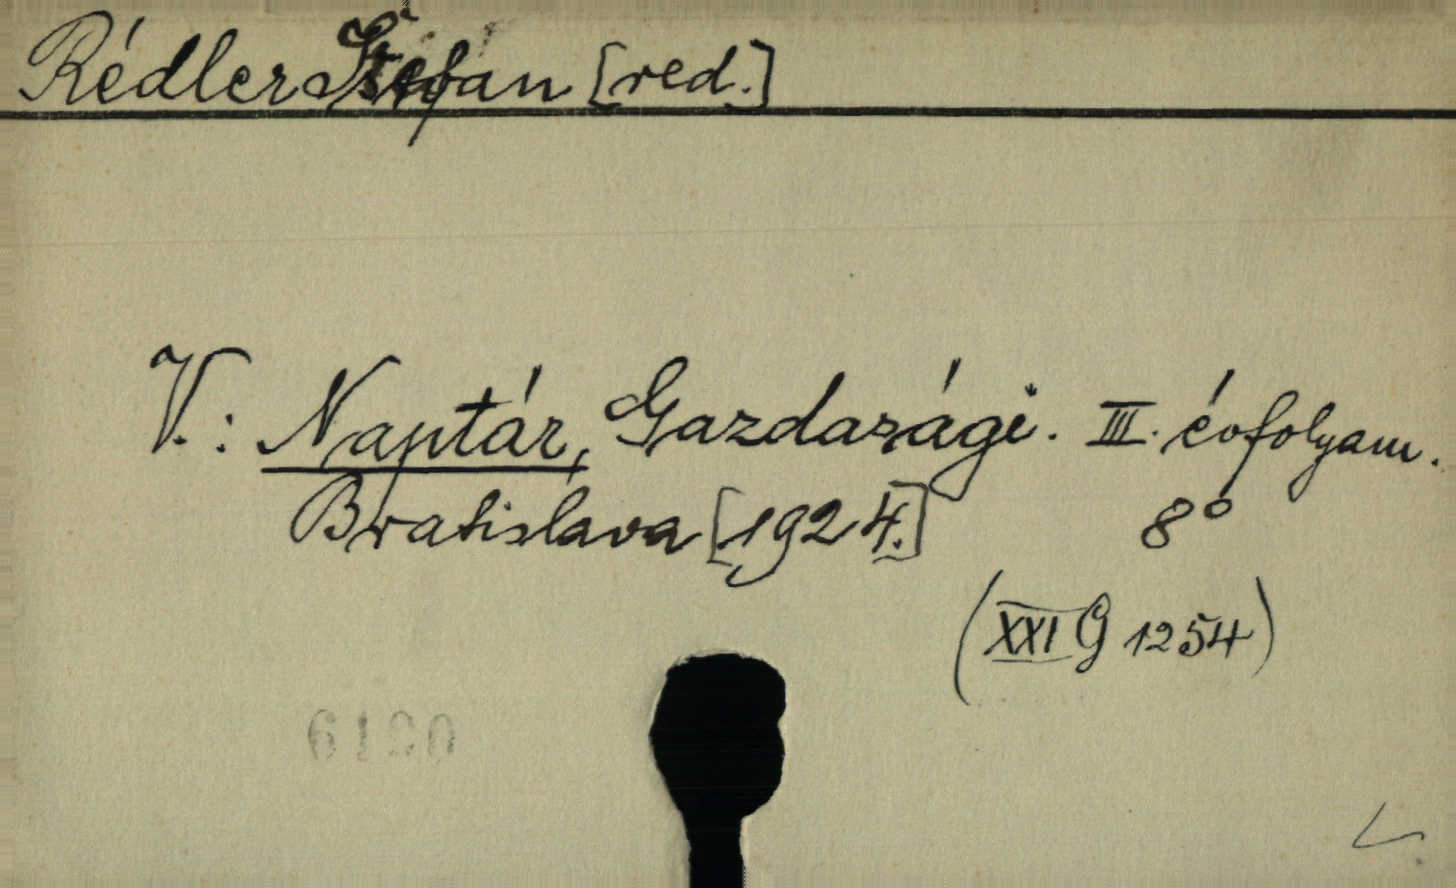 Rédler Štefan [red.]
V.: Naptár, Gazdasági. III. évfolyam.
Bratislava [1924.] 8°
(XXI G 1254)